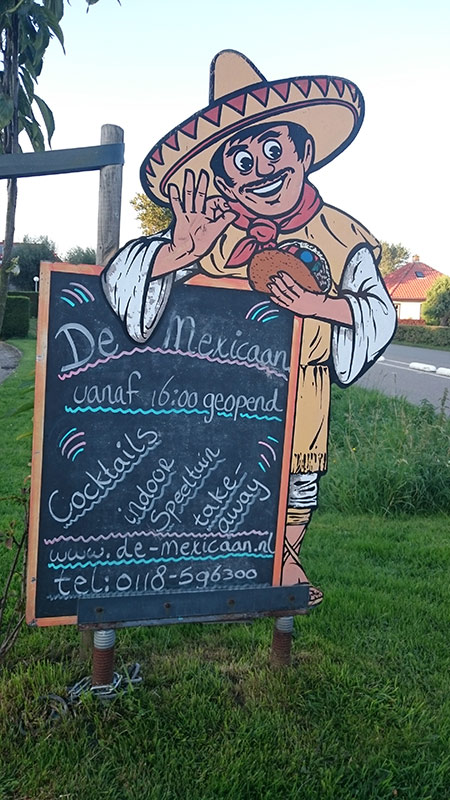 De Mexicaan
vanaf 16:00 geopend
Cocktails
indoor
Speeltuin
take-
away
www.de-mexicaan.nl
tel: 0118-596300